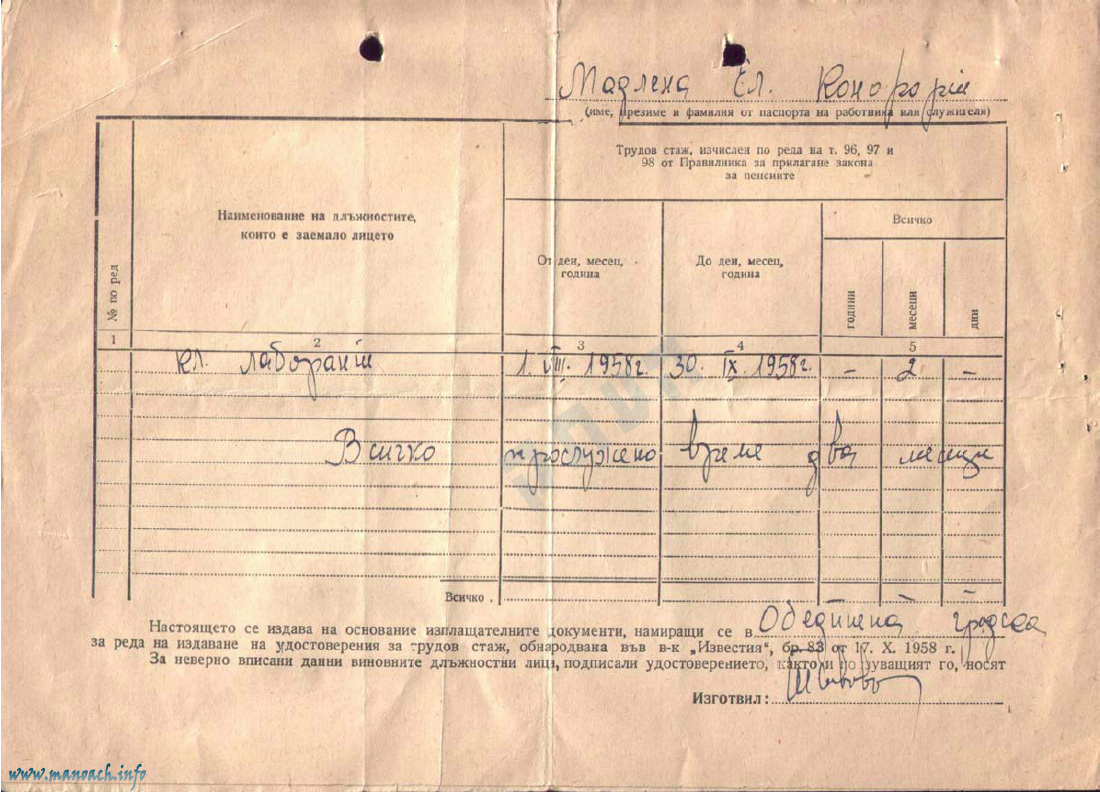 Мадлена Ел.
(име, презиме и фамилия от паспорта на работника или служителя)
Трудов стаж, изчислен по реда на т. 96, 97 и
98 от Правилника за прилагане закона
за пенсиите
Наименование на длъжностите,
които е заемало лицето
Всичко
От ден, месец,
година
До ден, месец,
година
№ по ред
години
месеци
дни
1 2 3 4 5
кл. лаборант 1. VIII. 1958г. 30. IX. 1958г. – 2 –
Всичко прослужено време два месеци
Всичко . – –
Настоящето се издава на основание изплащателните документи, намиращи се в Обединена градска
за реда на издаване на удостоверения за трудов стаж, обнародвана във в-к „Известия“, бр. 83 от 17. X. 1958 г.
За неверно вписани данни виновните длъжностни лица, подписали удостоверението, както и ползуващият го, носят
Изготвил:
www.manoach.info